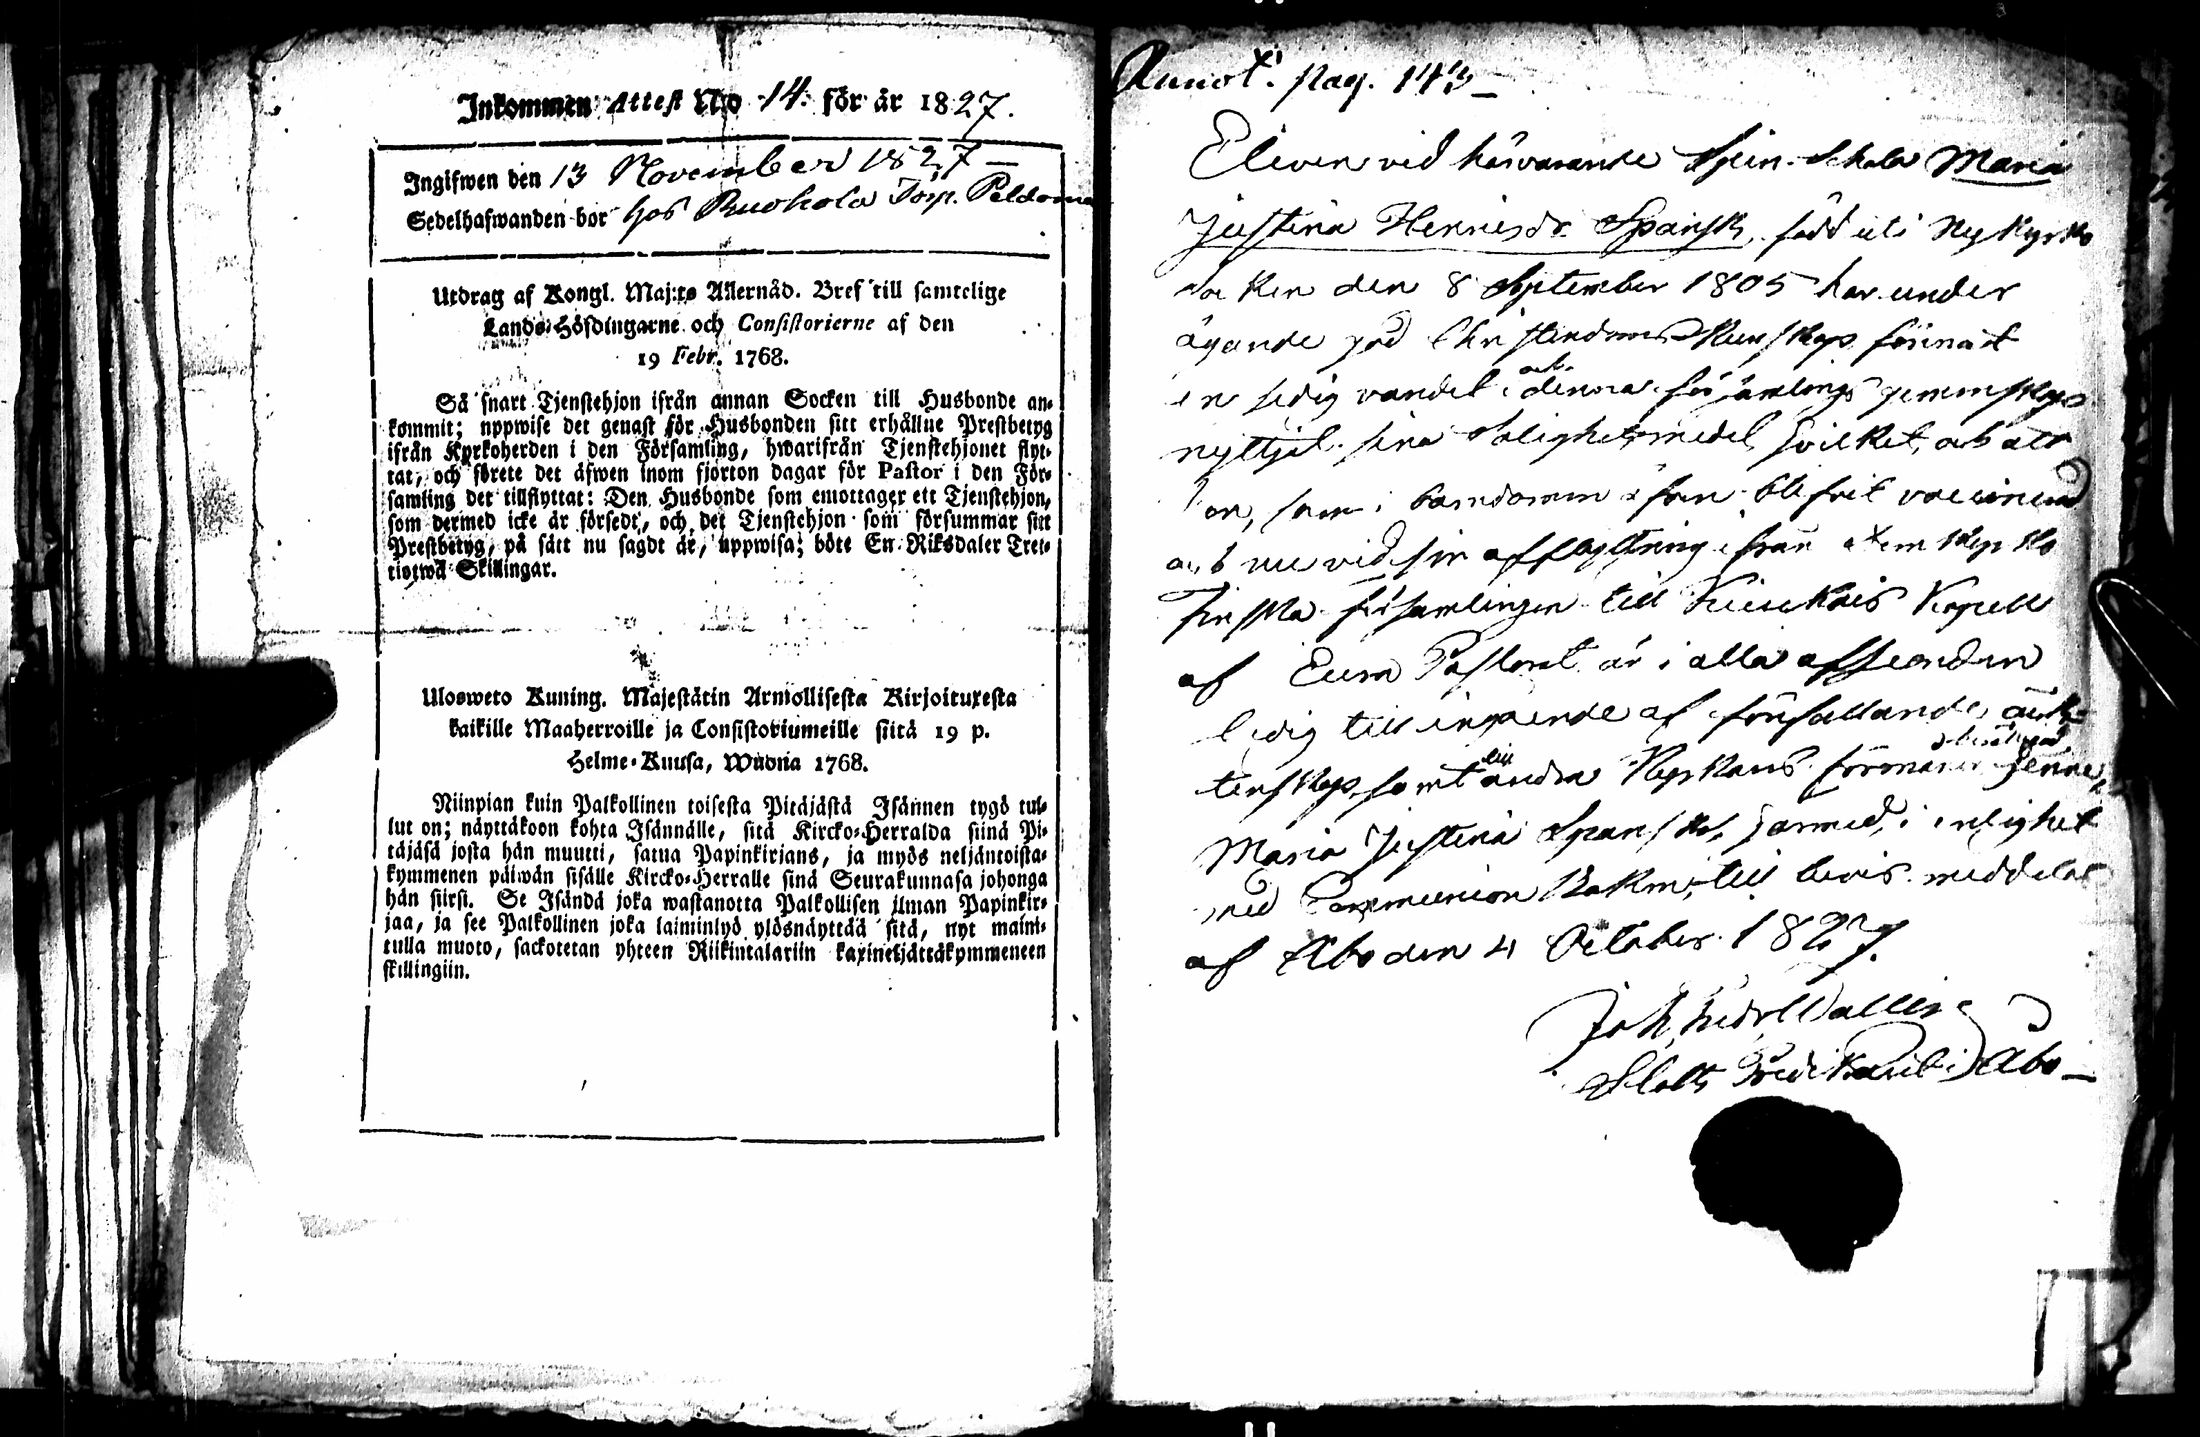 Inkommen Attest No 14. för år 1827.
Ingifwen den 13 November 1827 –
Sedelhafwanden bor hos Ruohola Torp.
Utdrag af Kongl. Maj:ts Allernåd. Bref till samtelige
Lands-Höfdingarne och Consistorierne af den
19 Febr. 1768.
Så snart Tjenstehjon ifrån annan Socken till Husbonde an-
kommit; uppwise det genast för Husbonden sitt erhållne Prestbetyg
ifrån Kyrkoherden i den Församling, hwarifrån Tjenstehjonet flyt-
tat, och förete det äfwen inom fjorton dagar för Pastor i den För-
samling det tillflyttat: Den Husbonde som emottager ett Tjenstehjon,
som dermed icke är försedt, och det Tjenstehjon som försummar sitt
Prestbetyg, på sätt nu sagdt är, uppwisa; böte En Riksdaler Tret-
tiotwå Skillingar.
Ulosweto Kuning. Majestätin Armollisesta Kirjoituxesta
kaikille Maaherroille ja Consistoriumeille siitä 19 p.
Helme-Kuusa, Wuonna 1768.
Niinpian kuin Palkollinen toisesta Pitäjästä Isännen tygö tul-
lut on; näyttäkoon kohta Isännälle, sitä Kircko-Herralda siinä Pi-
täjäsä josta hän muutti, satua Papinkirjans, ja myös neljäntoista-
kymmenen päiwän sisälle Kircko-Herralle sinä Seurakunnasa johonga
hän siirsi. Se Isändä joka wastanotta Palkollisen ilman Papinkir-
jaa, ja see Palkollinen joka laiminlyö ylösnäyttää sitä, nyt maini-
tulla muoto, sackotetan yhteen Riikintalariin kaxineljättäkymmeneen
skillingiin.
Annot. pag. 143 –
Eleven vid härvarande Spin-Schola Maria
Justina Henricsdr. Spansk, född uti Nykyrko
Socken den 8 September 1805 har under
ägande god Christendoms Kunskap förenat
en sedig vandel, och i denna församlings gemenskap
nyttjat sina Salighetsmedel, hvilket, och att
hon, som i barndomen äfven blifvit vaccinerad
och nu vid sin afflyttning ifrån Åbo
Finska församlingen till Kiukais Kapell
af Eura Pastorat är i alla afseenden
ledig till ingående af förefallande äck-
tenskap, samt till andra Kyrkans förmåner
Maria Justina Spansk, härmed, i enlighet
med Communion Boken, till bevis meddelas
af Åbo den 4 October 1827.
Joh. Fredr. Wallin
Slotts Predikant i Åbo –